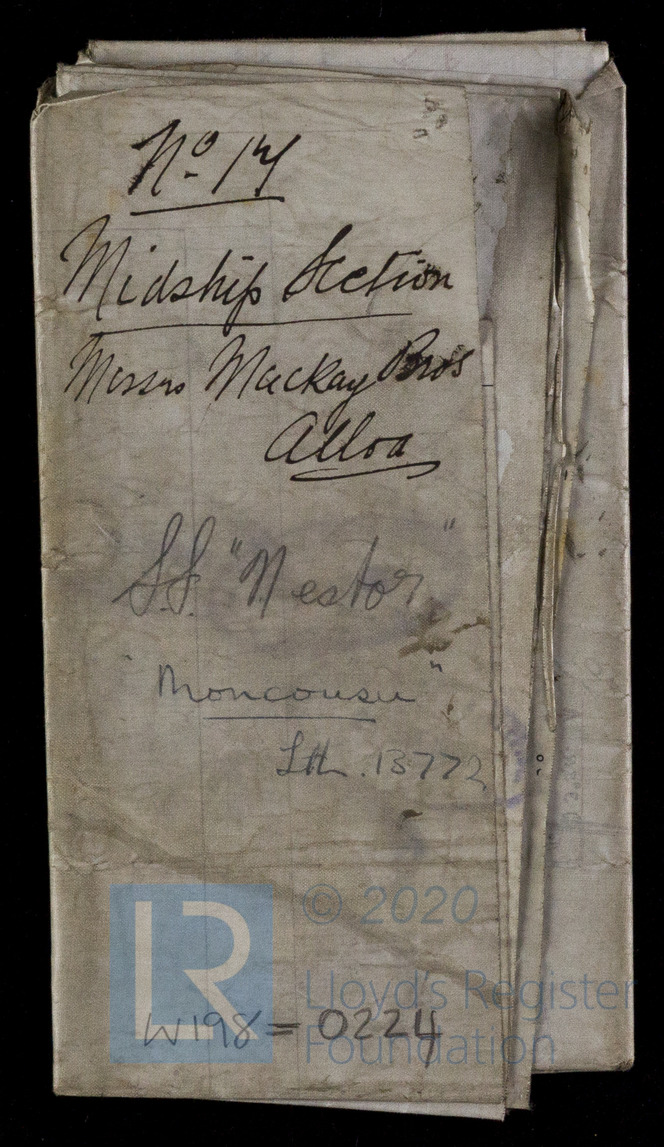 No 17
Midship Section
Messrs Mackay Bros
Alloa
S.S. "Nestor"
"Moncousu"
Lth. 13772
LR
© 2020
Lloyd's Register
Foundation
W198=0224